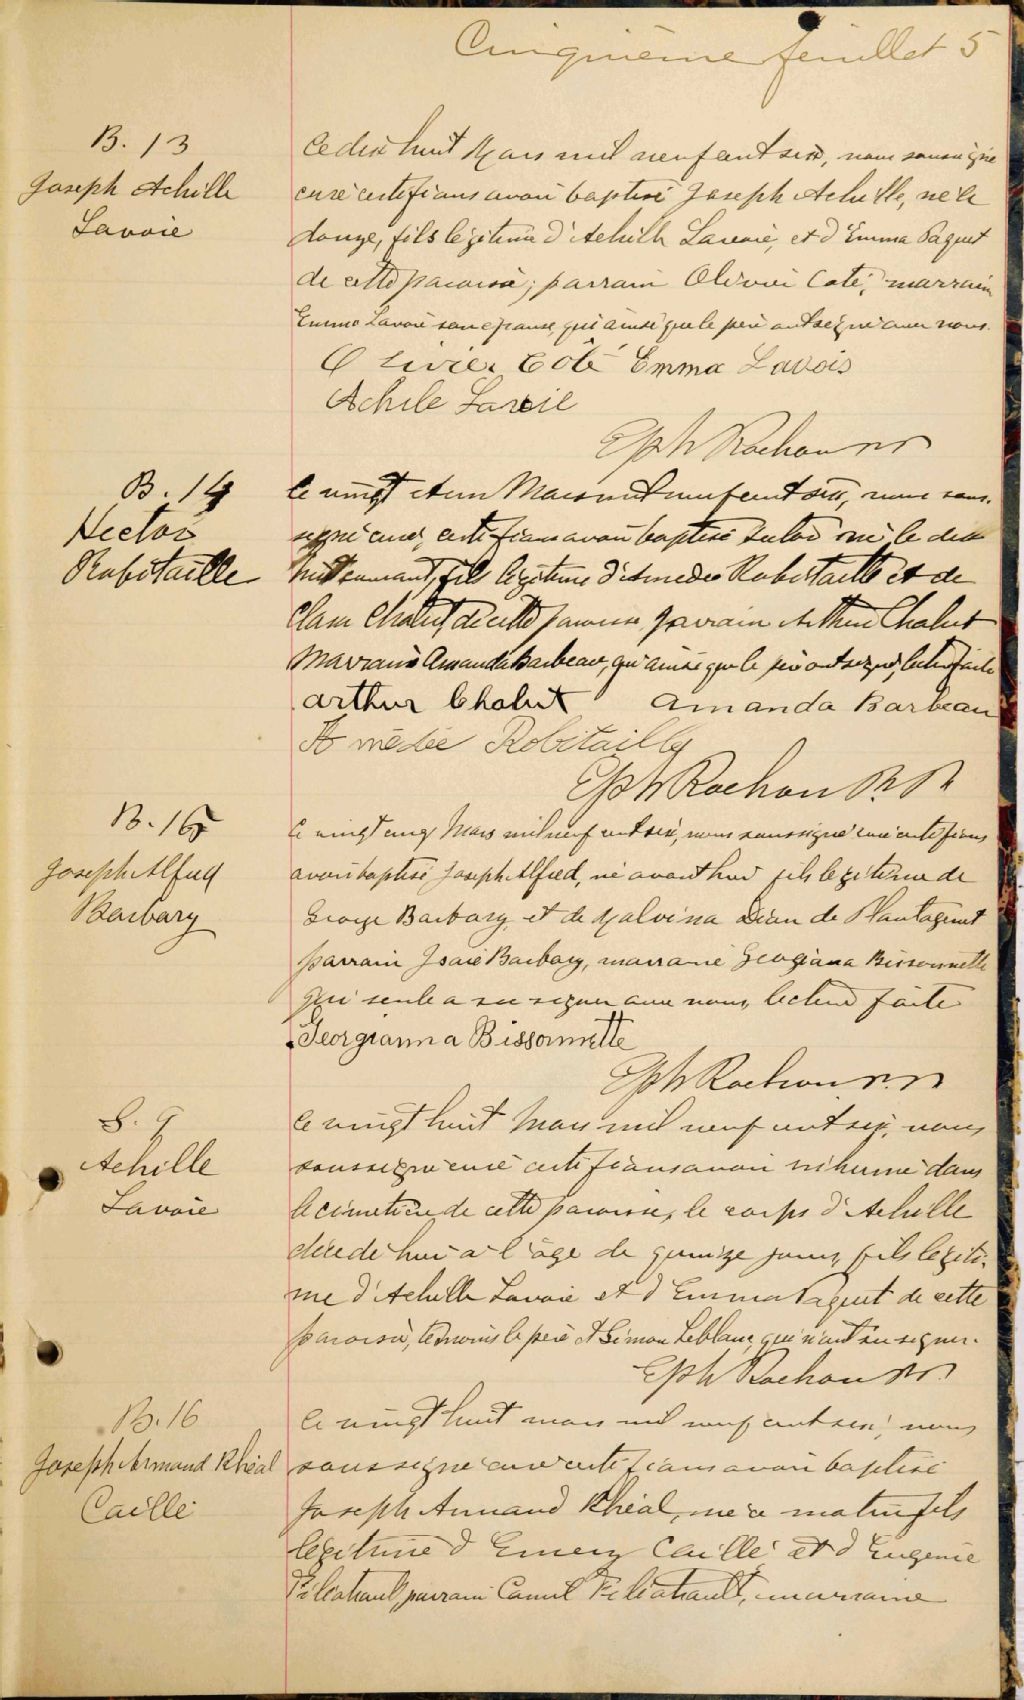 Cinquième feuillet 5
B. 13
Joseph Achille
Lavoie
Le dix huit Mars mil neuf cent six, nous soussigné
curé certifions avoir baptisé Joseph Achille, né le
douze, fils légitime d'Achille Lavoie, et d'Emma Paquet
de cette paroisse; parrain Olivier Coté, marraine
Emma Lavoie son épouse, qui ainsi que le père ont signé avec nous.
Olivier Côté Emma Lavois
Achile Lavoie
Eph Rochon ptr
B. 14
Hector
Robitaille
Le vingt et un Mars mil neuf cent six, nous sous-
signé curé, certifions avoir baptisé Hector né le dix
huit courant, fils légitime d'Amédée Robitaille et de
Clara Chalut, de cette paroisse, parrain Arthur Chalut
Marraine Amanda Barbeau, qui ainsi que le père ont signé, lecture faite
arthur Chalut amanda Barbeau
Amédée Robitaille
Eph Rochon Ptr
B. 15
Joseph Alfred
Barbary
Le vingt cinq Mars mil neuf cent six, nous soussigné curé certifions
avoir baptisé Joseph Alfred, né avant hier fils légitime de
George Barbary, et de Malvina Dian de Plantagenet
parrain Isaïe Barbary, marraine Georgiana Bissonnette
qui seule a su signer avec nous, lecture faite
Georgianna Bissonnette
Eph Rochon ptr
S. 9
Achille
Lavoie
Le vingt huit Mars mil neuf cent six, nous
soussigné curé certifions avoir inhumé dans
le cimetière de cette paroisse, le corps d'Achille
décédé hier a l'âge de quinze jours, fils légiti-
me d'Achille Lavoie et d'Emma Paquet de cette
paroisse, témoins le père et Simon Leblanc, qui n'ont su signer.
Eph Rochon Ptr
B. 16
Joseph Armand Rhéal
Caillé
Le vingt huit mars mil neuf cent six, nous
soussigné curé certifions avoir baptisé
Joseph Armand Rhéal, né ce matin fils
légitime d'Emery Caillé et d'Eugénie
Filiatrault, parrain Camil Filiatrault, marraine